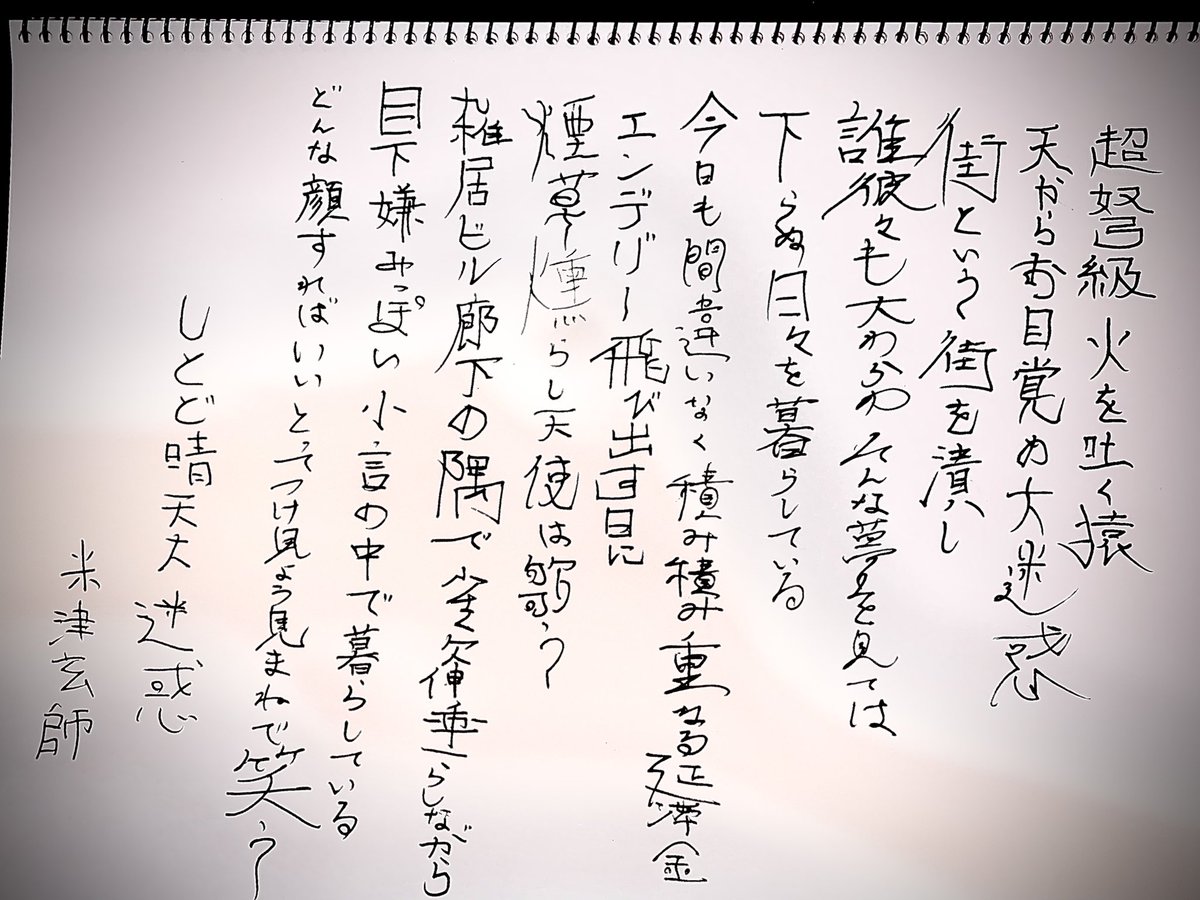 超弩級 火を吐く猿
天からお目覚め大迷惑
街という街を潰し
誰彼々も大わらわ そんな夢を見ては
下らぬ日々を暮らしている
今日も間違いなく積み積み重なる延滞金
エンデバー飛び出す日に
煙草燻らし天使は笑う
雑居ビル廊下の隅で 欠伸垂らしながら
目下嫌みっぽい小言の中で暮らしている
どんな顔すればいい とってつけ見よう見まねで笑う
しとど晴天大迷惑
米津玄師